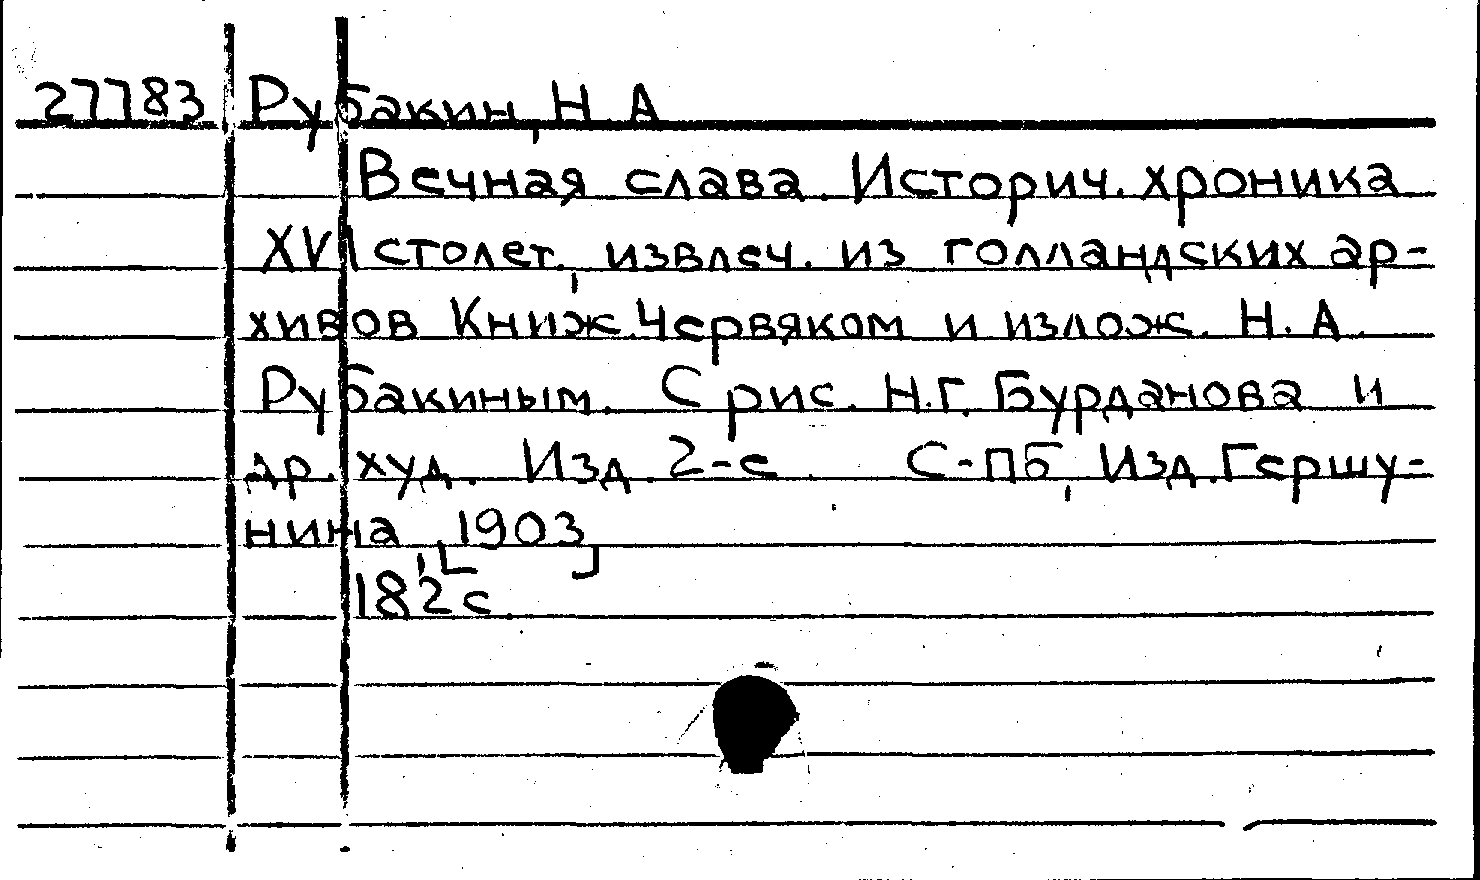 27783 Рубакин, Н. А
Вечная слава. Историч. хроника
XVI столет., извлеч. из голландских ар-
хивов Книж. Червяком и излож. Н. А.
Рубакиным. С рис. Н. Г. Бурданова и
др. худ. Изд. 2-е. С-пб, Изд. Гершу-
нина, [1903]
182 с.